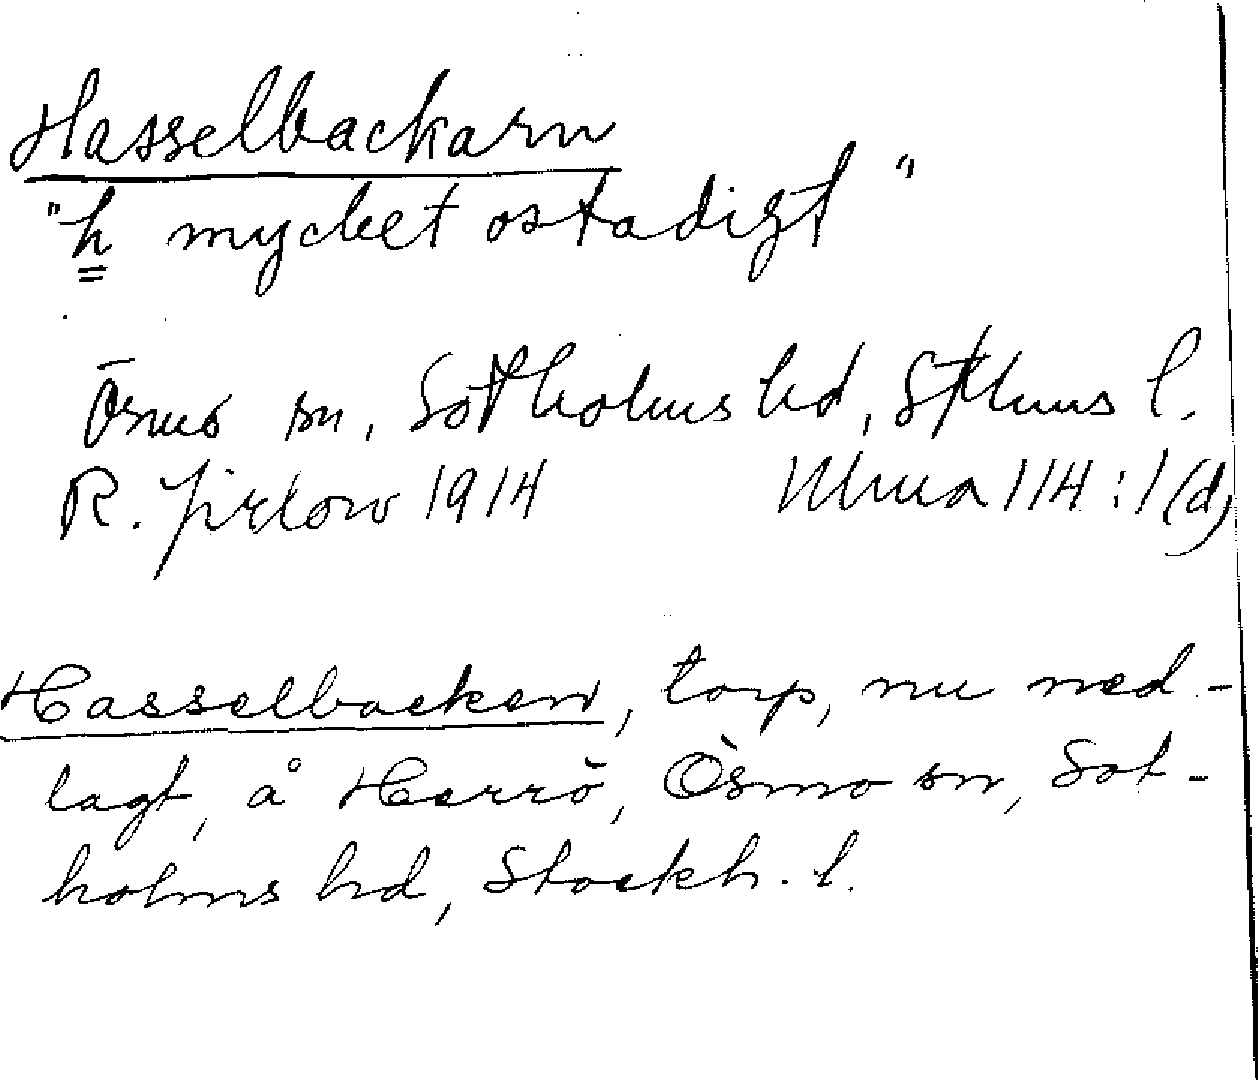 Hasselbackarn
"h mycket ostadigt"
Ösmo sn, Sotholms hd, Sthlms l.
R. Jirlow 1914 Ulma 114:1(d)
Hasselbacken, torp, nu ned-
lagt, å Herrö, Ösmo sn, Sot-
holms hd, Stockh. l.